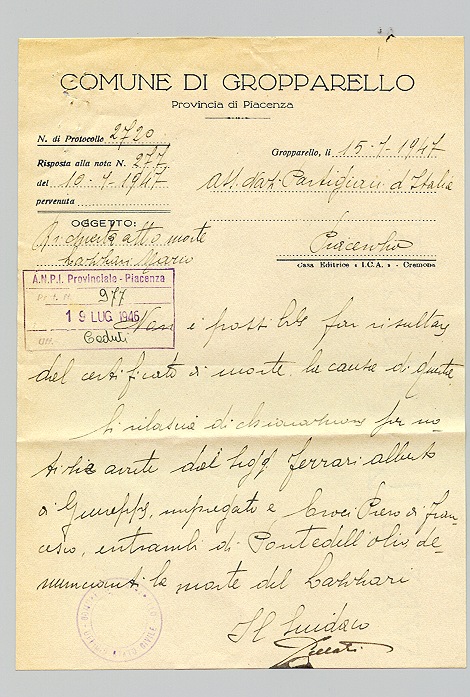 COMUNE DI GROPPARELLO
Provincia di Piacenza
N. di Protocollo 2720
Risposta alla nota N. 277
del 10-7-1947
pervenuta
Gropparello, li 15-7-1947
Ass. Naz. Partigiani d'Italia
Piacenza
Casa Editrice " I.C.A. " - Cremona
OGGETTO:
Richiesta atto morte
Mario
A.N.P.I. Provinciale - Piacenza
977
19 LUG 1946
Caduti
Non è possibile far risultare
dal certificato di morte la causa di questa.
Si rilascia dichiarazione per no-
tizie avute dal Sigg. Ferrari Alberto
di Giuseppe, impiegato e Croci Piero di Fran-
cesco, entrambi di Pontedell'olio, de-
nuncianti la morte del
Il Sindaco
STATO CIVILE